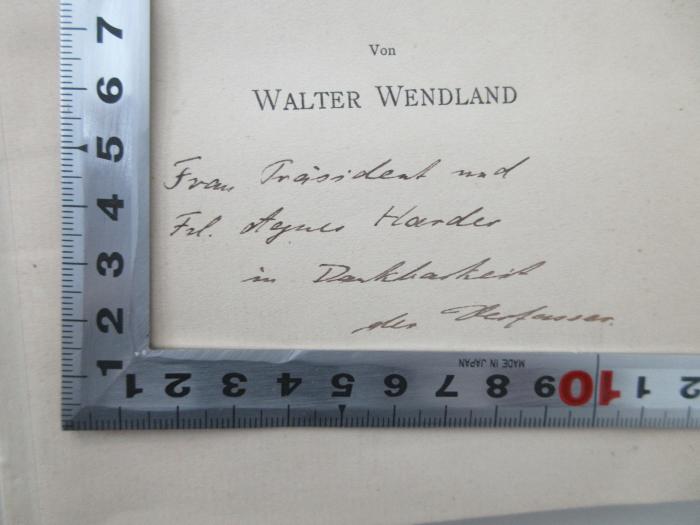 Von
WALTER WENDLAND
Frau Präsident und
Frl. Agnes Harder
in Dankbarkeit
der Verfasser.
7
6
5
4
3
2
1
1 2 3 4 5 6 7 8 9 10 1 2
MADE IN JAPAN